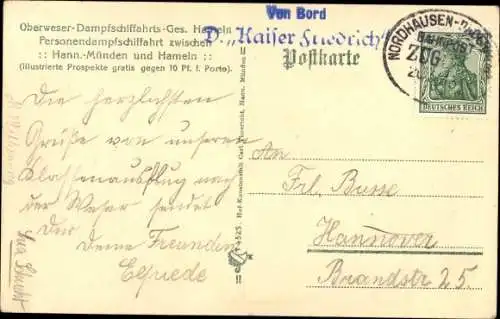 Oberweser-Dampfschiffahrts-Ges. Hameln
Personendampfschiffahrt zwischen
:: Hann.-Münden und Hameln ::
(Illustrierte Prospekte gratis gegen 10 Pf. f. Porto).
Von Bord
D. „Kaiser Friedrich"
Postkarte
NORDHAUSEN-
BAHNPOST
ZUG
DEUTSCHES REICH
Die herzlichsten
Grüße von unserem
Klassenausflug nach
der Weser sendet
Dir Deine Freundin
Elfriede
An
Frl. Busse
Hannover
Brandstr 25.